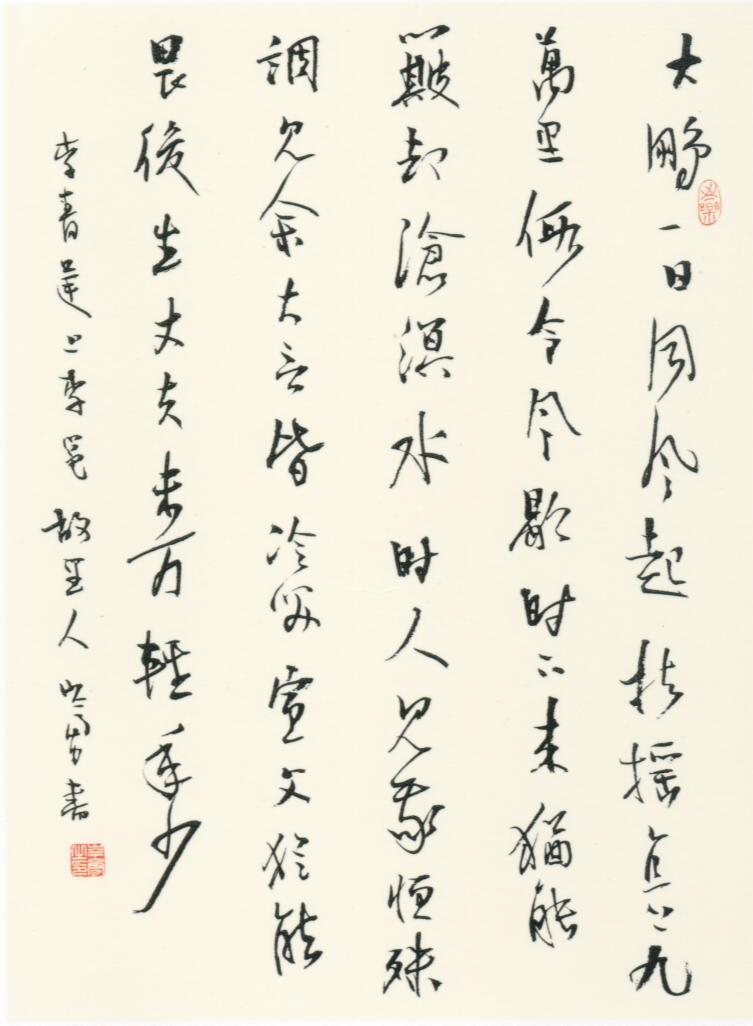 大鵬一日同风起扶摇直上九
萬里假令风歇时下来猶能
簸却滄溟水时人见我恒殊
調见余大言皆冷笑宣父犹能
畏後生丈夫未可輕年少
李青蓮上李邕 故里人書